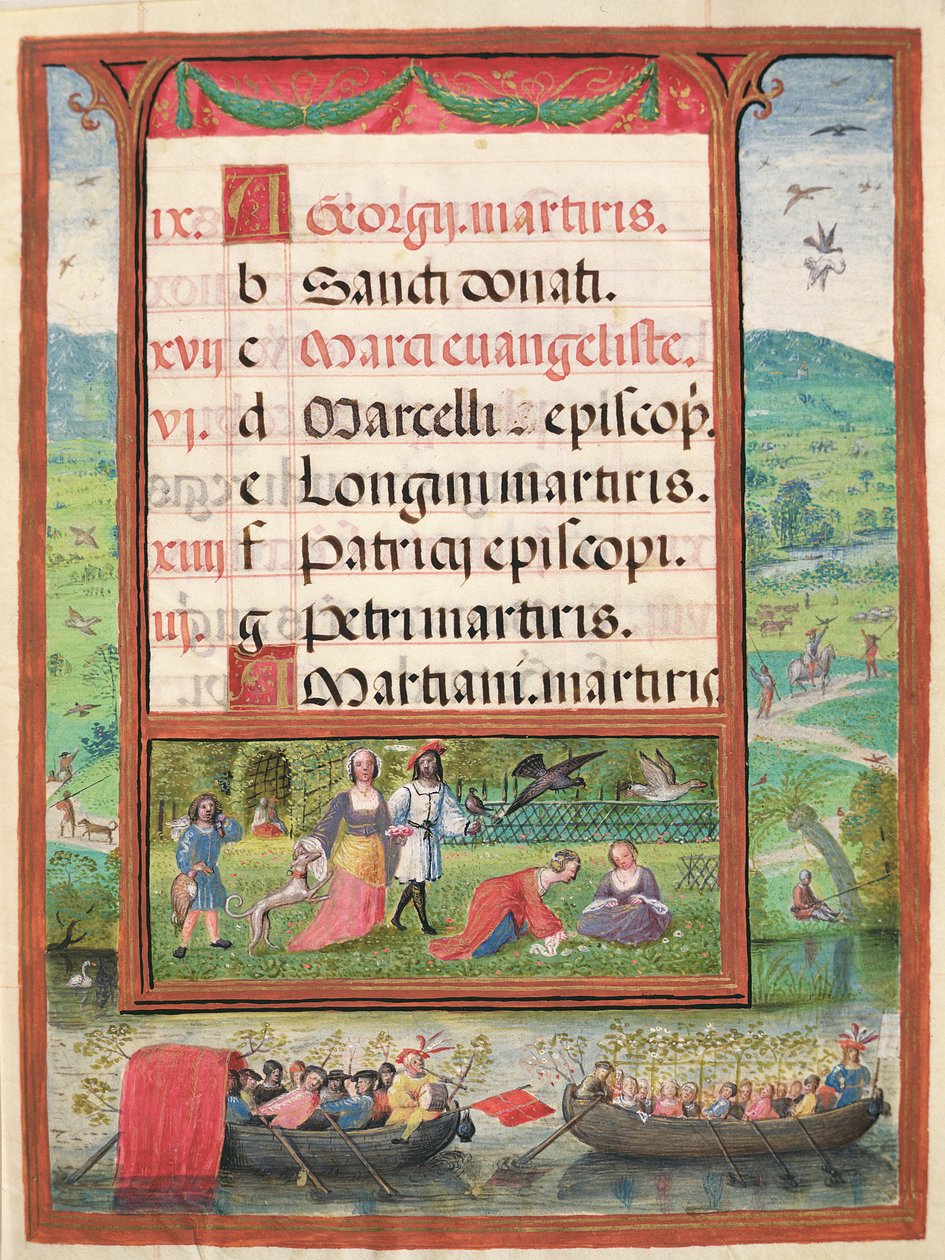 ix. A Georgij. martiris.
b Sancti donati.
xvij c Marci euangeliste.
vj. d Marcelli episcop.
e Longini martiris.
xiiij f Patricij episcopi.
iij. g Petri martiris.
A Martiani. martiris